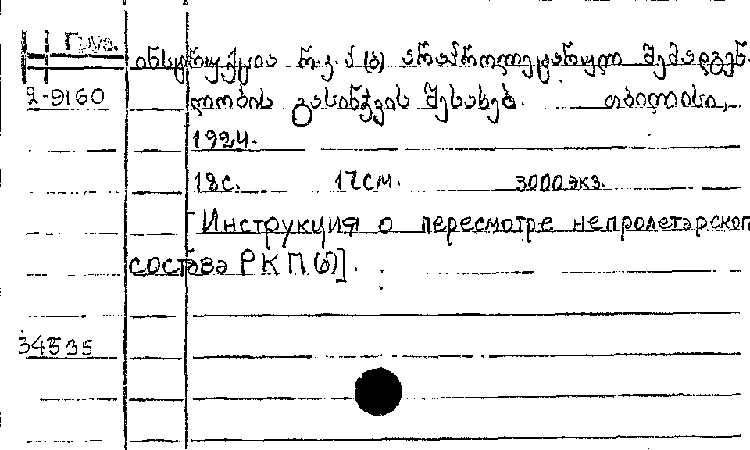 ინსტრუქცია რ.კ.პ (ბ) არაპროლეტარული შემადგენ-
2-9160 ლობის გასინჯვის შესახებ. თბილისი,
1924.
18с. 17см. 3000экз.
[Инструкция о пересмотре непролетарского
состава РКП(б)].
34535